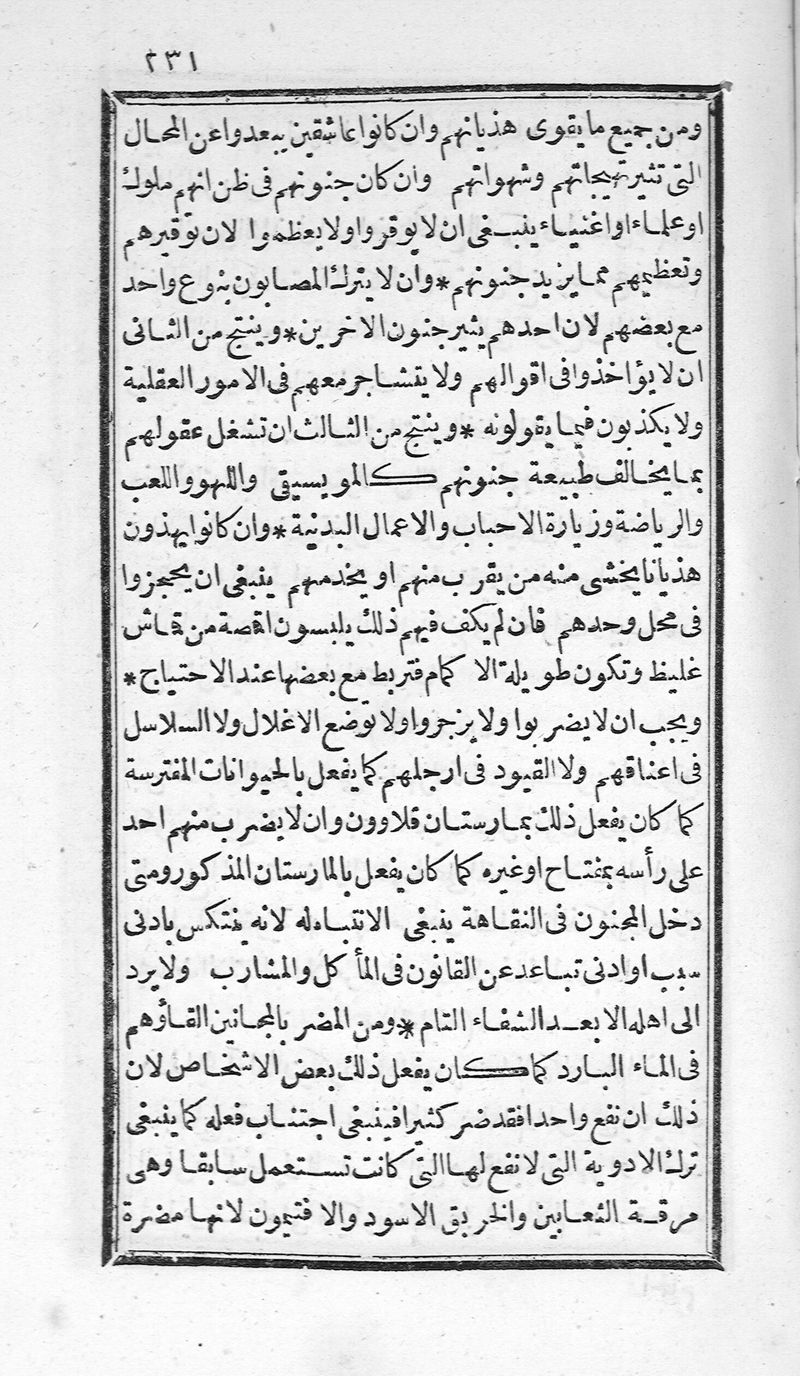 ٢٣١
ومن جميع ما يقوى هذيانهم وان كانوا عاشقين يبعدوا عن المحال
التى تثير تهيجاتهم وشهواتهم وان كان جنونهم فى ظن انهم ملوك
او علماء او اغنياء ينبغى ان لا يوقروا ولا يعظموا لان توقيرهم
وتعظيمهم مما يزيد جنونهم * وان لا يترك المصابون بنوع واحد
مع بعضهم لان احدهم يثير جنون الاخرين * وينتج من الثانى
ان لا يؤاخذوا فى اقوالهم ولا يتشاجر معهم فى الامور العقلية
ولا يكذبون فيما يقولونه * وينتج من الثالث ان تشغل عقولهم
بما يخالف طبيعة جنونهم كالمويسيقى واللهو واللعب
والرياضة وزيارة الاحباب والاعمال البدنية * وان كانوا يهذون
هذيانا يخشى منه من يقرب منهم او يخدمهم ينبغى ان يحجزوا
فى محل وحدهم فان لم يكف فيهم ذلك يلبسون اقصة من قماش
غليظ وتكون طويلة الاكمام فتربط مع بعضها عند الاحتياج *
ويجب ان لا يضربوا ولا يزجروا ولا توضع الاغلال ولا السلاسل
فى اعناقهم ولا القيود فى ارجلهم كما يفعل بالحيوانات المفترسة
كما كان يفعل ذلك بمارستان قلاوون وان لا يضرب منهم احد
على رأسه بمفتاح او غيره كما كان يفعل بالمارستان المذكور ومتى
دخل المجنون فى النقاهة ينبغى الانتباه له لانه ينتكس بادنى
سبب او ادنى تباعد عن القانون فى المأكل والمشارب ولا يرد
الى اهله الا بعد الشفاء التام * ومن المضر بالمجانين القاؤهم
فى الماء البارد كما كان يفعل ذلك بعض الاشخاص لان
ذلك ان نفع واحدا فقد ضر كثيرا فينبغى اجتناب فعله كما ينبغى
ترك الادوية التى لا نفع لها التى كانت تستعمل سابقا وهى
مرقة الثعابين والخربق الاسود والافتيمون لانها مضرة